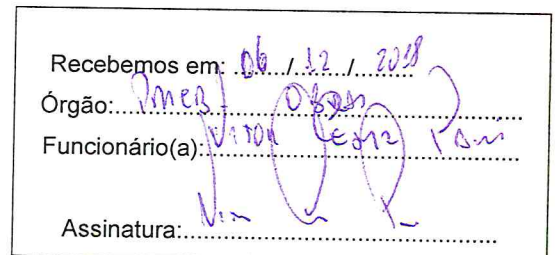 Recebemos em: 06 / 12 / 2018
Órgão: PMEB / OBRAS
Funcionário(a): Vitor
Assinatura: